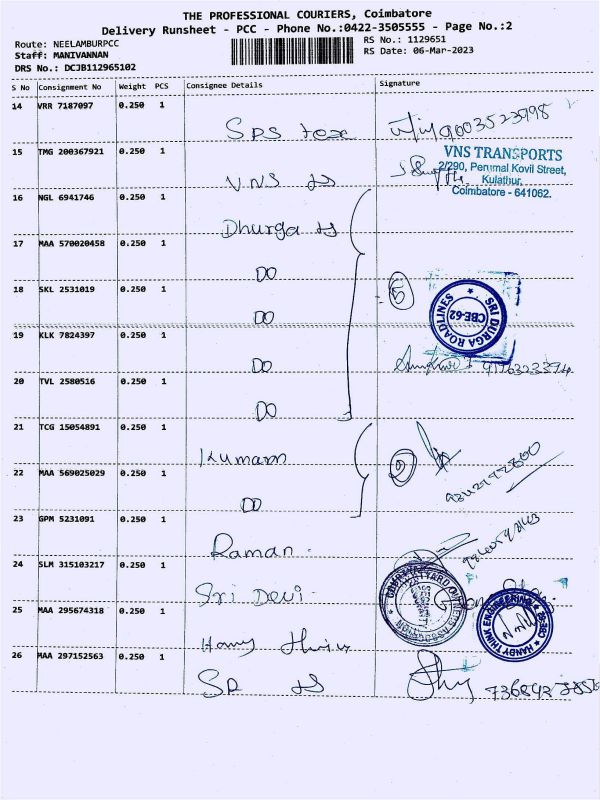 THE PROFESSIONAL COURIERS, Coimbatore
Delivery Runsheet - PCC - Phone No.:0422-3505555 - Page No.:2
Route: NEELAMBURPCC
RS No.: 1129651
Staff: MANIVANNAN
RS Date: 06-Mar-2023
DRS No.: DCJB112965102
S No Consignment No Weight PCS Consignee Details Signature
14 VRR 7187097 0.250 1
SPS tex 9003523998
15 TMG 200367921 0.250 1
VNS
VNS TRANSPORTS
2/290, Perumal Kovil Street,
Kulathur,
Coimbatore - 641062.
16 NGL 6941746 0.250 1
Dhurga
17 MAA 570020458 0.250 1
DO
18 SKL 2531019 0.250 1
DO 5
SRI DURGA ROADLINES
CBE-62
19 KLK 7824397 0.250 1
DO
20 TVL 2580516 0.250 1
DO
21 TCG 15054891 0.250 1
Kumaran 2
22 MAA 569025029 0.250 1
DO
23 GPM 5231091 0.250 1
Raman.
24 SLM 315103217 0.250 1
Sri Devi.
25 MAA 295674318 0.250 1
HANDY THINK ENGINEERING
26 MAA 297152563 0.250 1
SR